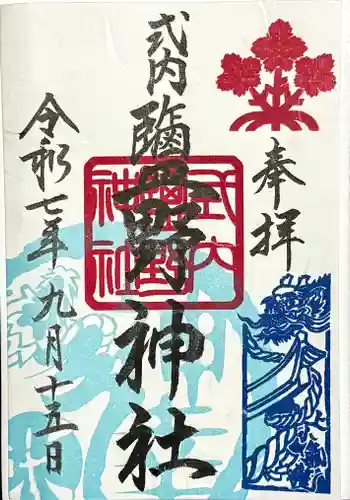 奉拝
式内
鹽野神社
式内
鹽野
神社
令和七年九月十五日